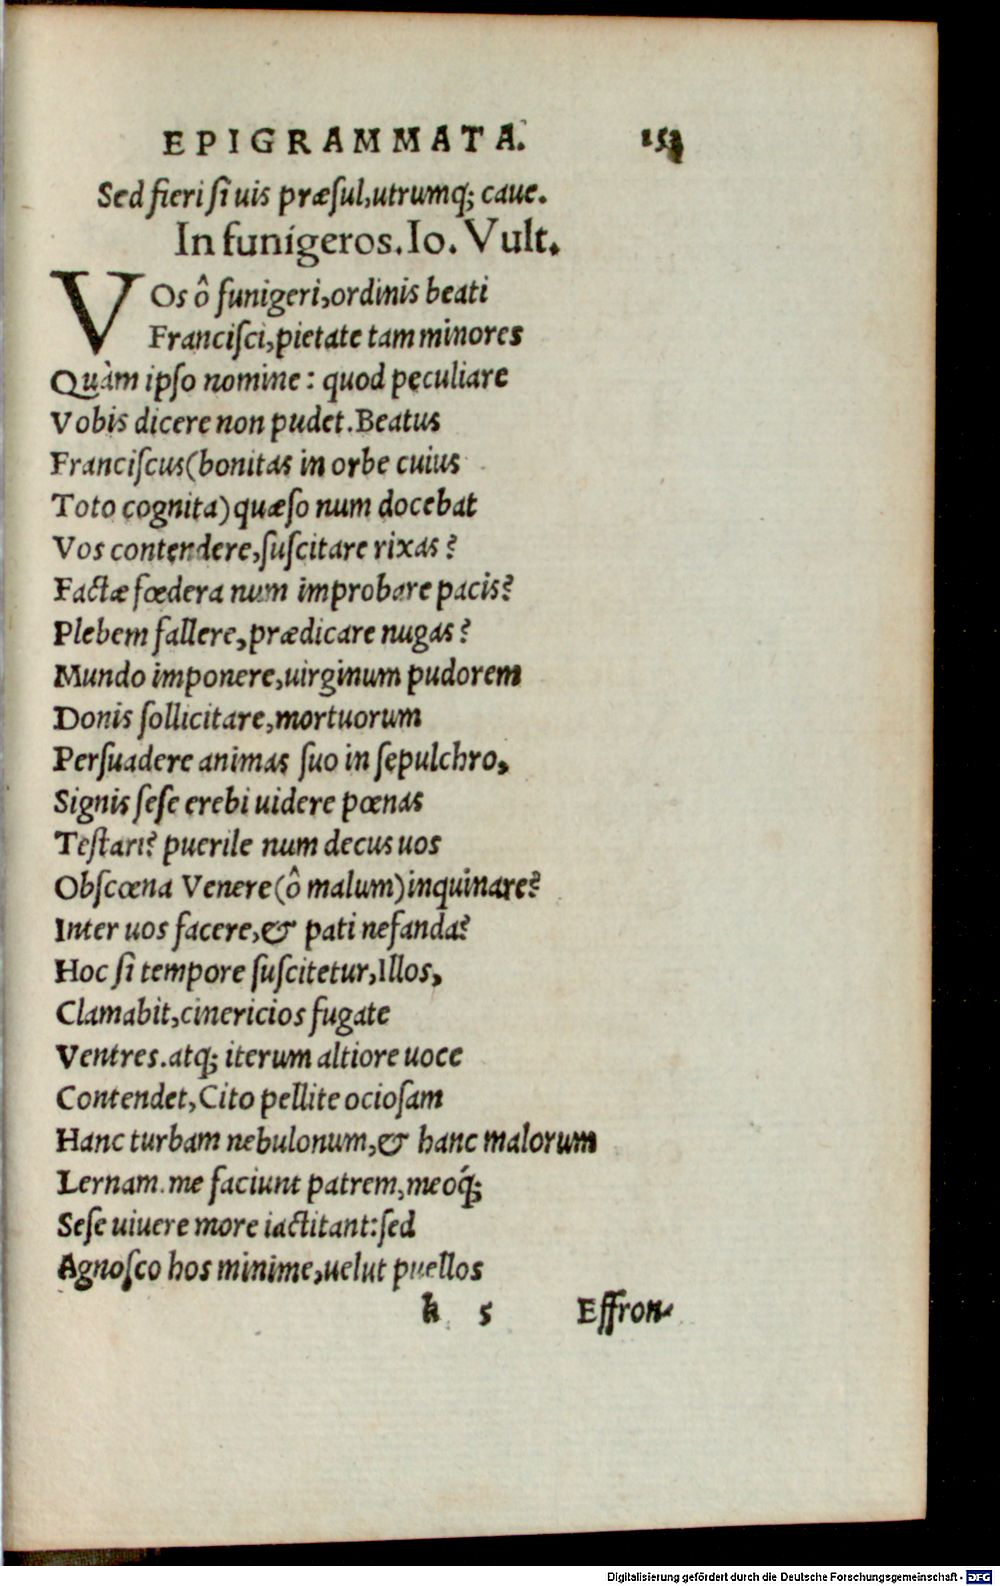 EPIGRAMMATA. 153
Sed fieri si uis præsul, utrumq; caue.
In funígeros. Io. Vult.
VOs ô funigeri, ordinis beati
Francisci, pietate tam minores
Quàm ipso nomine: quod peculiare
Vobis dicere non pudet. Beatus
Franciscus (bonitas in orbe cuius
Toto cognita) quæso num docebat
Vos contendere, suscitare rixas?
Factæ fœdera num improbare pacis?
Plebem fallere, prædicare nugas?
Mundo imponere, uirginum pudorem
Donis sollicitare, mortuorum
Persuadere animas suo in sepulchro,
Signis sese erebi uidere pœnas
Testari? puerile num decus uos
Obscœna Venere (ô malum) inquinare?
Inter uos facere, & pati nefanda?
Hoc si tempore suscitetur, Illos,
Clamabit, cinericios fugate
Ventres. atq; iterum altiore uoce
Contendet, Cito pellite ociosam
Hanc turbam nebulonum, & hanc malorum
Lernam. me faciunt patrem, meóq;
Sese uiuere more iactitant: sed
Agnosco hos minime, uelut puellos
k 5 Effron-
Digitalisierung gefördert durch die Deutsche Forschungsgemeinschaft - DFG